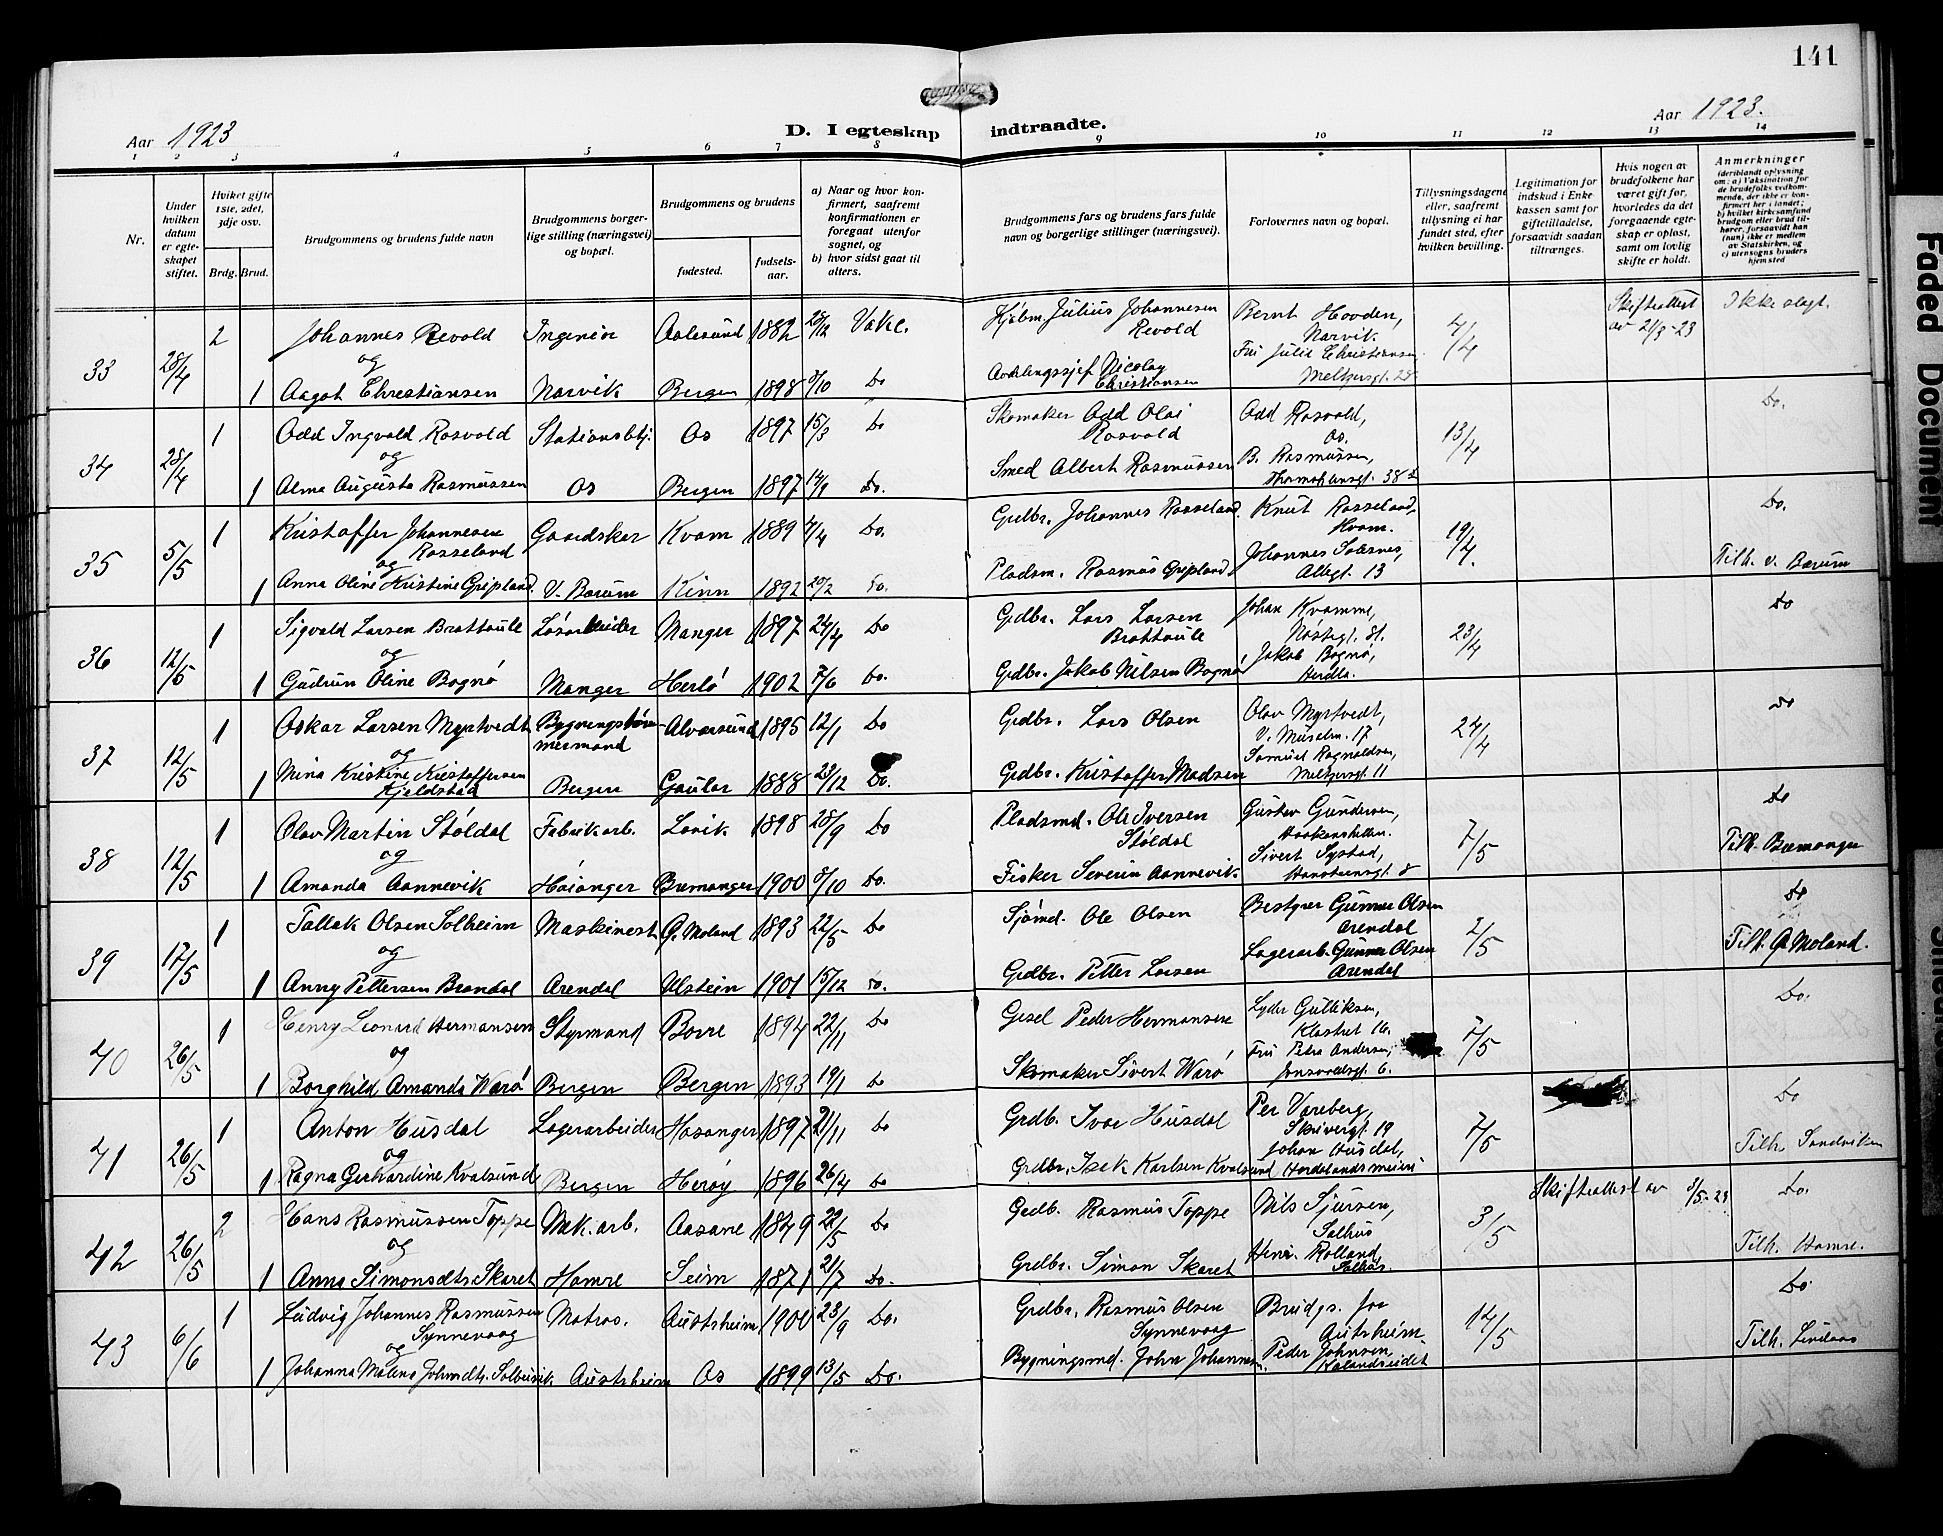 141
Aar 1923
D. I egteskap indtraadte.
Aar 1923.
1 2 3 4 5 6 7 8 9 10 11 12 13 14
Nr.
Under hvilken datum er egteskapet stiftet.
Hviket gifte 1ste, 2det, 3dje osv.
Brdg. Brud.
Brudgommens og brudens fulde navn
Brudgommens borgerlige stilling (næringsvei) og bopæl.
Brudgommens og brudens
fødested.
fødselsaar.
a) Naar og hvor konfirmert, saafremt konfirmationen er foregaaet utenfor sognet, og
b) hvor sidst gaat til alters.
Brudgommens fars og brudens fars fulde navn og borgerlige stillinger (næringsvei).
Forlovernes navn og bopæl.
Tillysningsdagene eller, saafremt tillysning ei har fundet sted, efter hvilken bevilling.
Legitimation for indskud i Enkekassen samt for giftetilladelse, forsaavidt saadan tiltrænges.
Hvis nogen av brudefolkene har været gift før, hvorledes da det foregaaende egteskap er opløst, samt om lovlig skifte er holdt.
Anmerkninger (deriblandt oplysning om: a) Vaksination for de brudefolks vedkommende, der ikke er konfirmert her i landet; b) hvilket kirkesamfund brudgom eller brud tilhører, forsaavidt han (hun) ikke er medlem av Statskirken, og c) utensogns bruders hjemsted
33 28/4 2 Johannes Revold Ingeniør Aalesund 1882 Vake. Hjelm. Julius Johannesen Revold Bernt Hovden, Narvik. 4/4 Skifteattest av 21/3-23 Ikke slegt.
og
1 Aagot Christiansen Narvik Bergen 1898 Do Avdelingssjef Nicolay Christiansen Fru Julie Christiansen Meltzersgt. 28
34 28/4 1 Odd Ingvald Rosvold Stationsbtj. Os 1897 15/3 Do Skomaker Odd Olai Rosvold Odd Rosvold, Os. 13/4 Do.
og
1 Alma Augusta Rasmussen Os Bergen 1897 14/9 Do. Smed Albert Rasmussen B. Rasmussen,
35 5/5 1 Kristoffer Johannesen Rosseland Gaardskar Kvam 1889 4/4 Do. Grdbr. Johannes Rosseland. Knut Rosseland, Kvam. 19/4. Do.
og
1 Anna Oline Kristine Gripland. V. Bærum Kinn 1892 20/2 Do. Pladsm. Rasmus Gripland. Johannes Solesnes, Allegt. 13 Tilh. V. Bærum
36 12/5 1 Sigvald Larsen Brattaule Løsarbeider Manger 1897 24/4 Do Grdbr. Lars Larsen Brattaule Johan Kvamme, Nøstegt. 81. 23/4 Do
og
1 Gudrun Oline Bognø Manger Herlø 1902 7/6 Do. Grdbr. Jakob Nilsen Bognø Jakob Bognø, Herdla.
37 12/5 1 Oskar Larsen Myrtvedt Bygningstømmermand Alversund 1895 12/1 Do Grdbr. Lars Olsen Olav Myrtvedt, V. Muralm. 17 24/4 Do
og
1 Nina Kristine Kristoffersen Kjeldstad Bergen Gaular 1888 29/12 Do. Grdbr. Kristoffer Madsen Samuel Ragnaldsen, Meltzersgt. 11
38 12/5 1 Olav Martin Støldal Fabrikarb. Lavik 1898 28/9 Do Pladsmd. Ole Iversen Støldal Gustav Gundersen, 7/5 Do
og
1 Amanda Aannevik Høianger Bremanger 1900 8/10 Do. Fisker Severin Aannevik Sivert Systad, Hansteensgt. 8 Tilh. Bremanger
39 17/5 1 Tallak Olsen Solheim Maskinest Ø. Moland 1893 22/5 Do Sjømd. Ole Olsen Bestyrer Gunnar Olsen Arendal 2/5 Do
og
1 Anny Pettersen Brandal Arendal Ulstein 1901 15/12 Do. Grdbr. Petter Larsen Lagerarb. Gunnar Olsen Arendal Tilh. Ø. Moland.
40 26/5 1 Henry Leonard Hermansen Styrmand Borre 1894 22/11 Do Gesel Peder Hermansen Lyder Gulliksen, Klostret 16. 7/5 Do.
og
1 Borghild Amanda Warø Bergen Bergen 1893 19/1 Do Skomaker Sivert Warø Fru Petra Andersen, Jonsvoldsgt. 6.
41 26/5 1 Anton Husdal Lagerarbeider Hosanger 1897 21/11 Do Grdb. Ivar Husdal Per Vareberg, Skivergt. 19 7/5 Do
og
1 Ragna Gerhardine Kvalsund Bergen Herøy 1896 26/4 Do Grdbr. Isak Karlsen Kvalsund Johan Husdal, Hordalandsmeieri Tilh. Sandviken
42 26/5 2 Hans Rasmussen Toppe Mek. arb. Aasane 1849 22/5 Do Grdb. Rasmus Toppe Nils Sjursen, Salhus 3/5 Skifteattest av 8/5-23 Do.
og
1 Anna Simonsdtr. Skaret Hamre Seim 1871 21/7 Do. Grdbr. Simon Skaret Henr. Rolland, Salhus. Tilh. Hamre.
43 6/6 1 Ludvig Johannes Rasmussen Synnevaag Matros. Austrheim 1900 23/9 Do. Grdbr. Rasmus Olsen Synnevaag Brudgs. far Autrheim 14/5 Do
og
1 Johanna Malene Johnsdtr. Austrheim Os 1899 13/5 Do. Bygningsmd. John Johannesen. Peder Johnsen, Kalandseidet Tilh. Lindaas
Faded Document